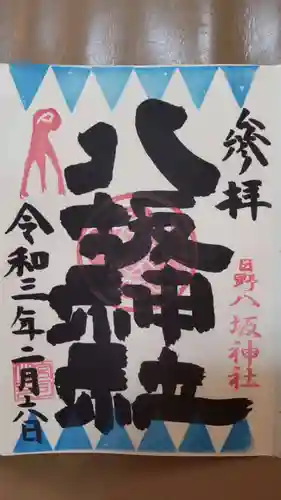 参拝
八坂神社
日野八坂神社
令和三年二月十六日